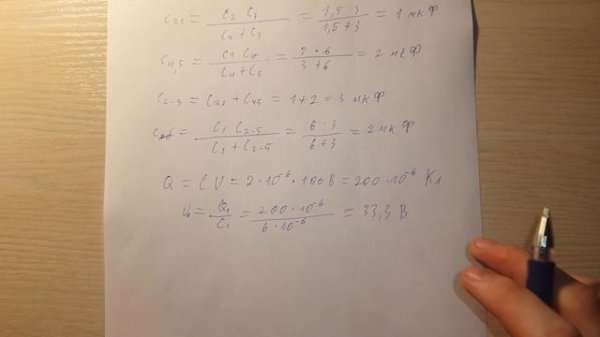 C₂,₃ = C₂ C₃ / C₂ + C₃ = 1,5·3 / 1,5+3 = 1 мкФ
C₄,₅ = C₁ C₄ / C₄ + C₅ = 3·6 / 3+6 = 2 мкФ
C₂₋₃ = C₂₃ + C₄₅ = 1+2 = 3 мкФ
Cоб = C₁ C₂₋₅ / C₁ + C₂₋₅ = 6·3 / 6+3 = 2мкФ
Q = CU = 2·10⁻⁶·100В = 200·10⁻⁶ Кл
U = Q₁ / C₁ = 200·10⁻⁶ / 6·10⁻⁶ = 33,3 В